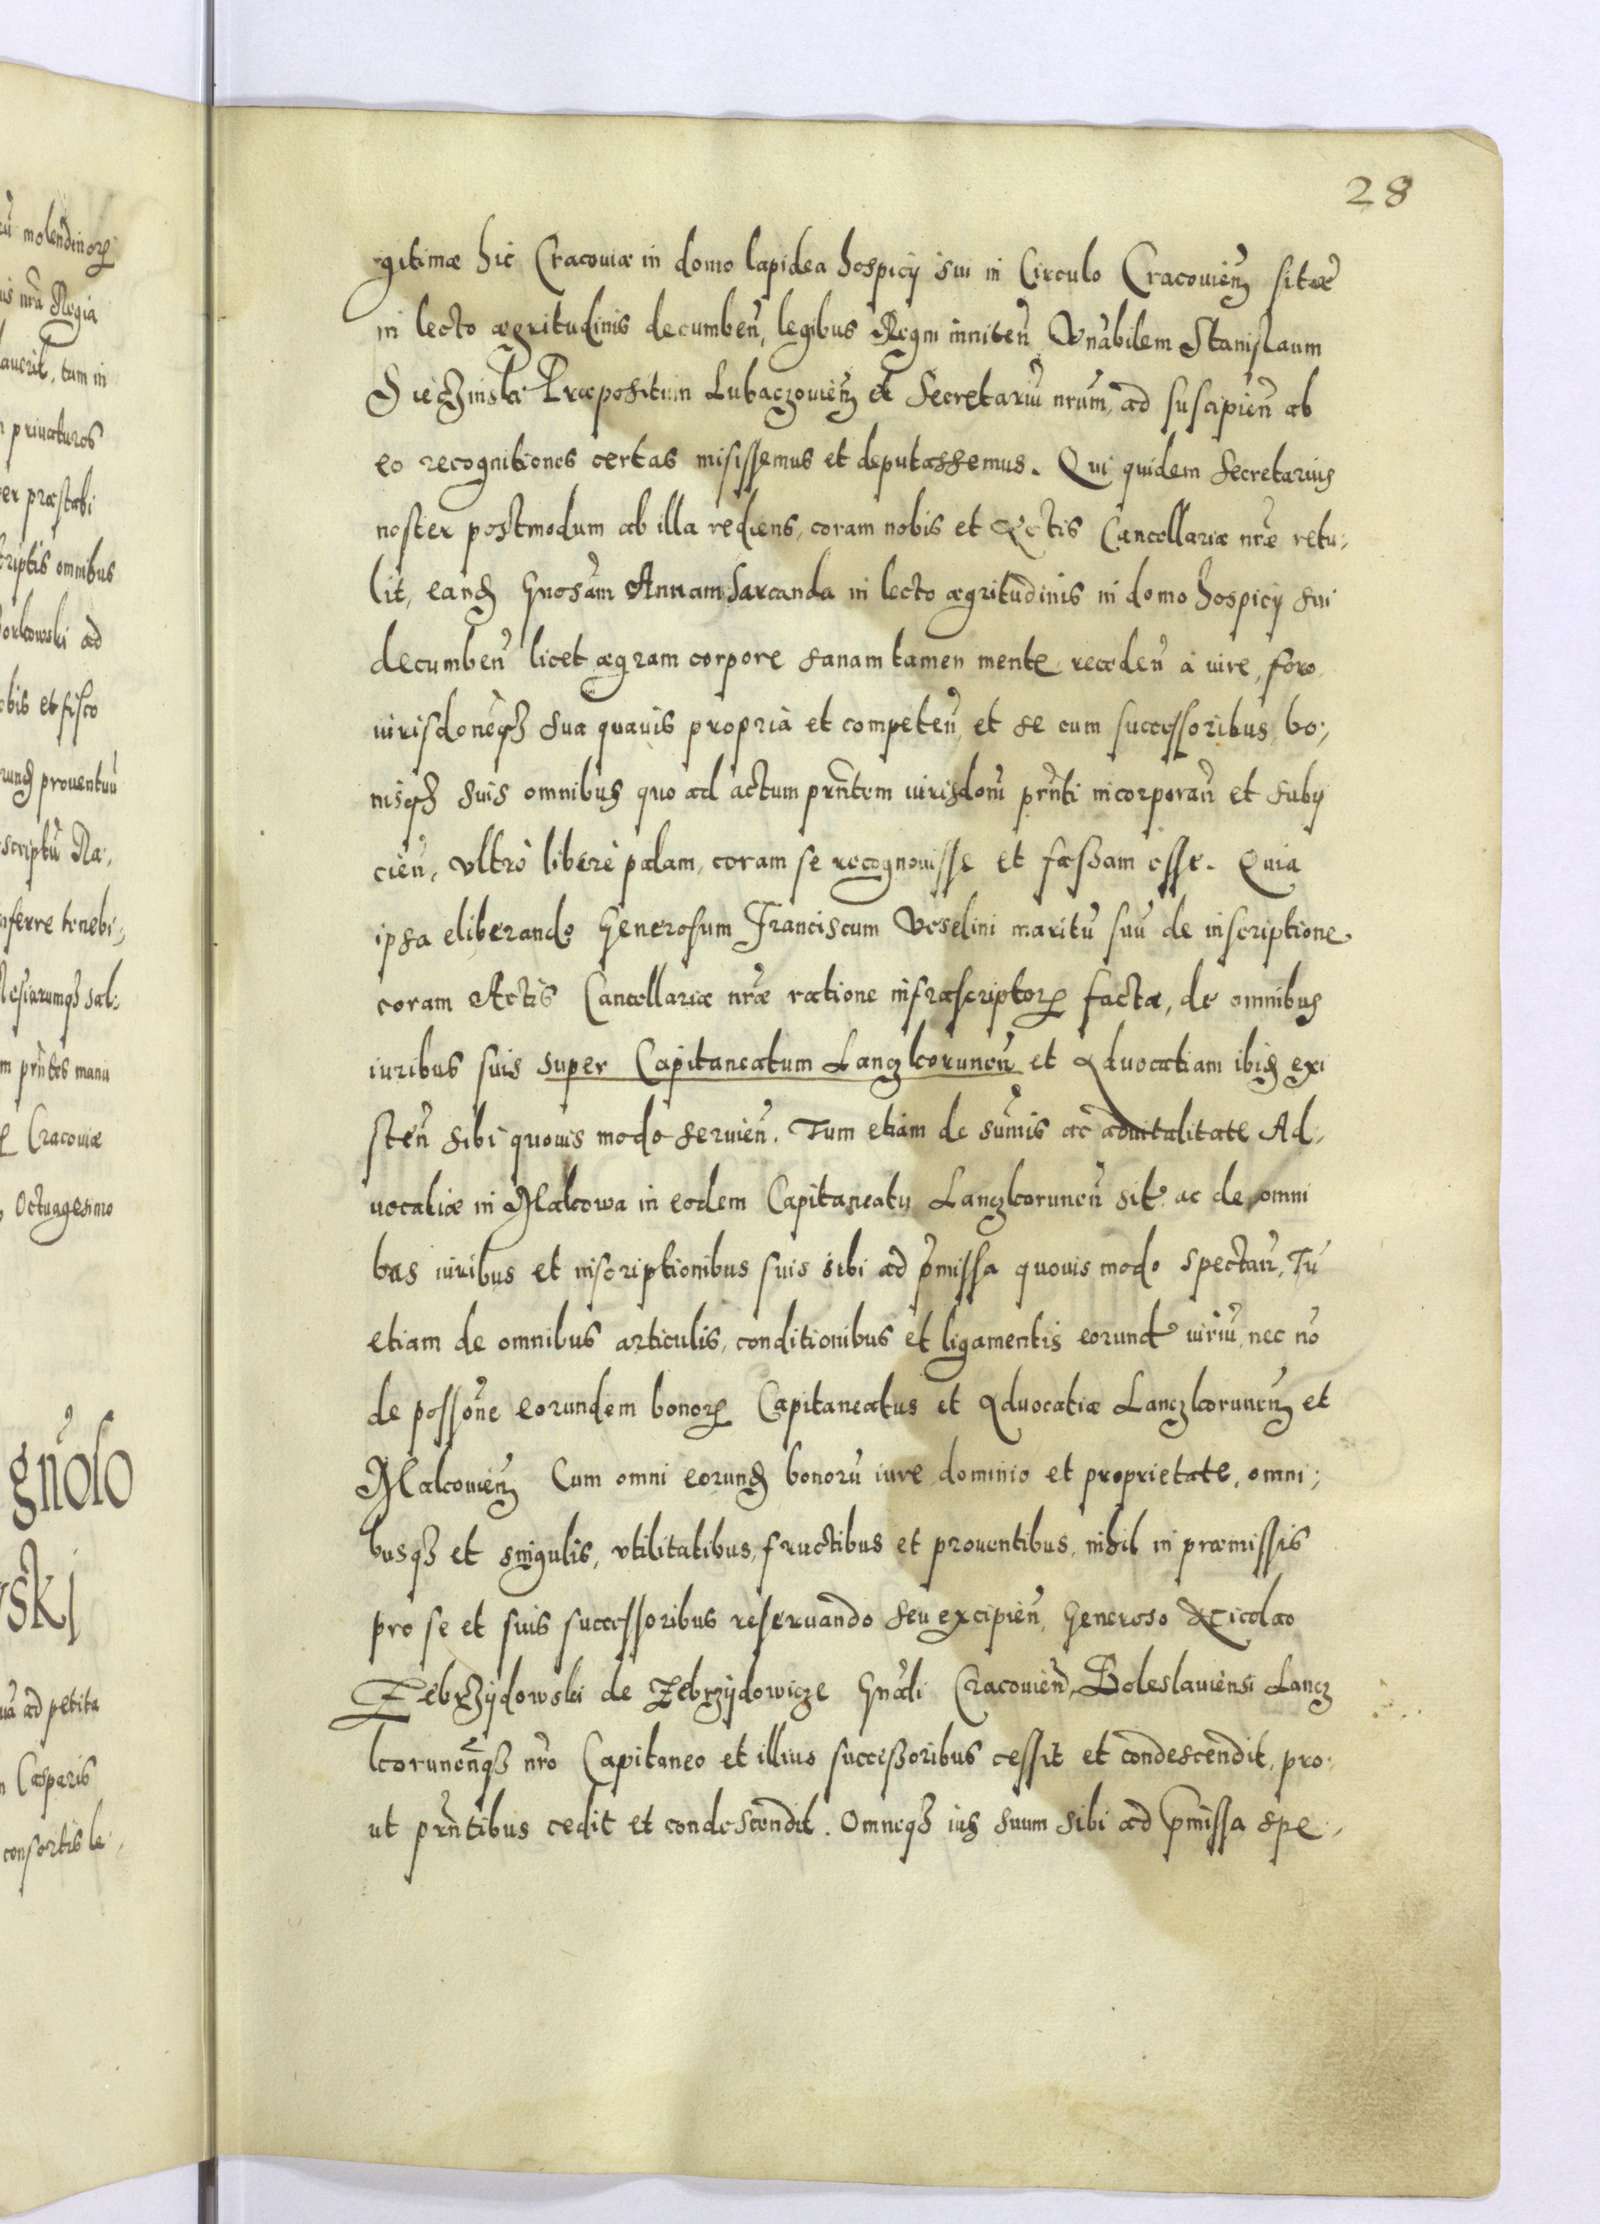 28
gitimæ hic Cracouiæ in domo lapidea hospicij sui in Circulo Cracouien̄ sitæ
in lecto ægritudinis decumben̄, legibus Regni inniten̄ Vn̄abilem Stanislaum
Præpositum Lubaczouien̄ et Secretariū nr̄um, ad suscipien̄ ab
eo recognitiones certas misissemus et deputassemus. Qui quidem Secretarius
noster postmodum ab illa rediens, coram nobis et Actis Cancellariæ nr̄æ retu,
lit, eand Gnosam Annam Sarcanda in lecto ægritudinis in domo hospicij sui
decumben̄ licet ægram corpore sanam tamen mente receden̄ à iure, foro
iurisdoneq3 sua quauis propria et competen̄ et se cum successoribus, bo,
nisq3 suis omnibus quo ad actum prn̄tem iurisdoni prn̄ti incorporan̄ et subij
cien̄, vltrò liberè palam, coram se recognouisse et fassam esse. Quia
ipsa eliberando Generosum Franciscum Veselini maritū suū de inscriptione
coram Actis Cancellariæ nr̄æ ratione infrascriptor facta, de omnibus
iuribus suis super Capitaneatum Lanczkorunen̄ et Aduocatiam ibid exi
sten̄ sibi quouis modo seruien̄. Tum etiam de sum̄is ac aduitalitate Ad,
uocatiæ in Makowa in eodem Capitaneatu Lanczkorunen̄ sit. ac de omni
bus iuribus et inscriptionibus suis sibi ad pmissa quouis modo spectan̄, Tū
etiam de omnibus articulis, conditionibus et ligamentis eorund iuriū, nec nō
de possoñe eorundem bonor Capitaneatus et Aduocatiæ Lanczkorunen̄ et
Makouien̄ Cum omni eorund bonorū iure dominio et proprietate, omni,
busq3 et singulis, vtilitatibus, fructibus et prouentibus, nihil in præmissis
pro se et suis successoribus reseruando seu excipien̄, Generoso Nicolao
Zebrzÿdowski de Zebrzÿdowicze Gnāli Cracouien̄, Boleslauiensi Lancz
korunen̄q3 nr̄o Capitaneo et illius successoribus cessit et condescendit, pro,
ut prn̄tibus cedit et condescendit. Omneq3 ius suum sibi ad pmissa spe,
ū molendinor
us nrā Regia
lauerit, tum in
privaturos
er præstabi
criptis omnibus
orkowski ad
obis et fisco
rund prouentuū
scriptū Ra,
nferre tenebi,
m prn̄tes manu
Cracouiæ
Octuagesimo
gn̄oso
wski
uā ad petita
Casparis
consortis le,